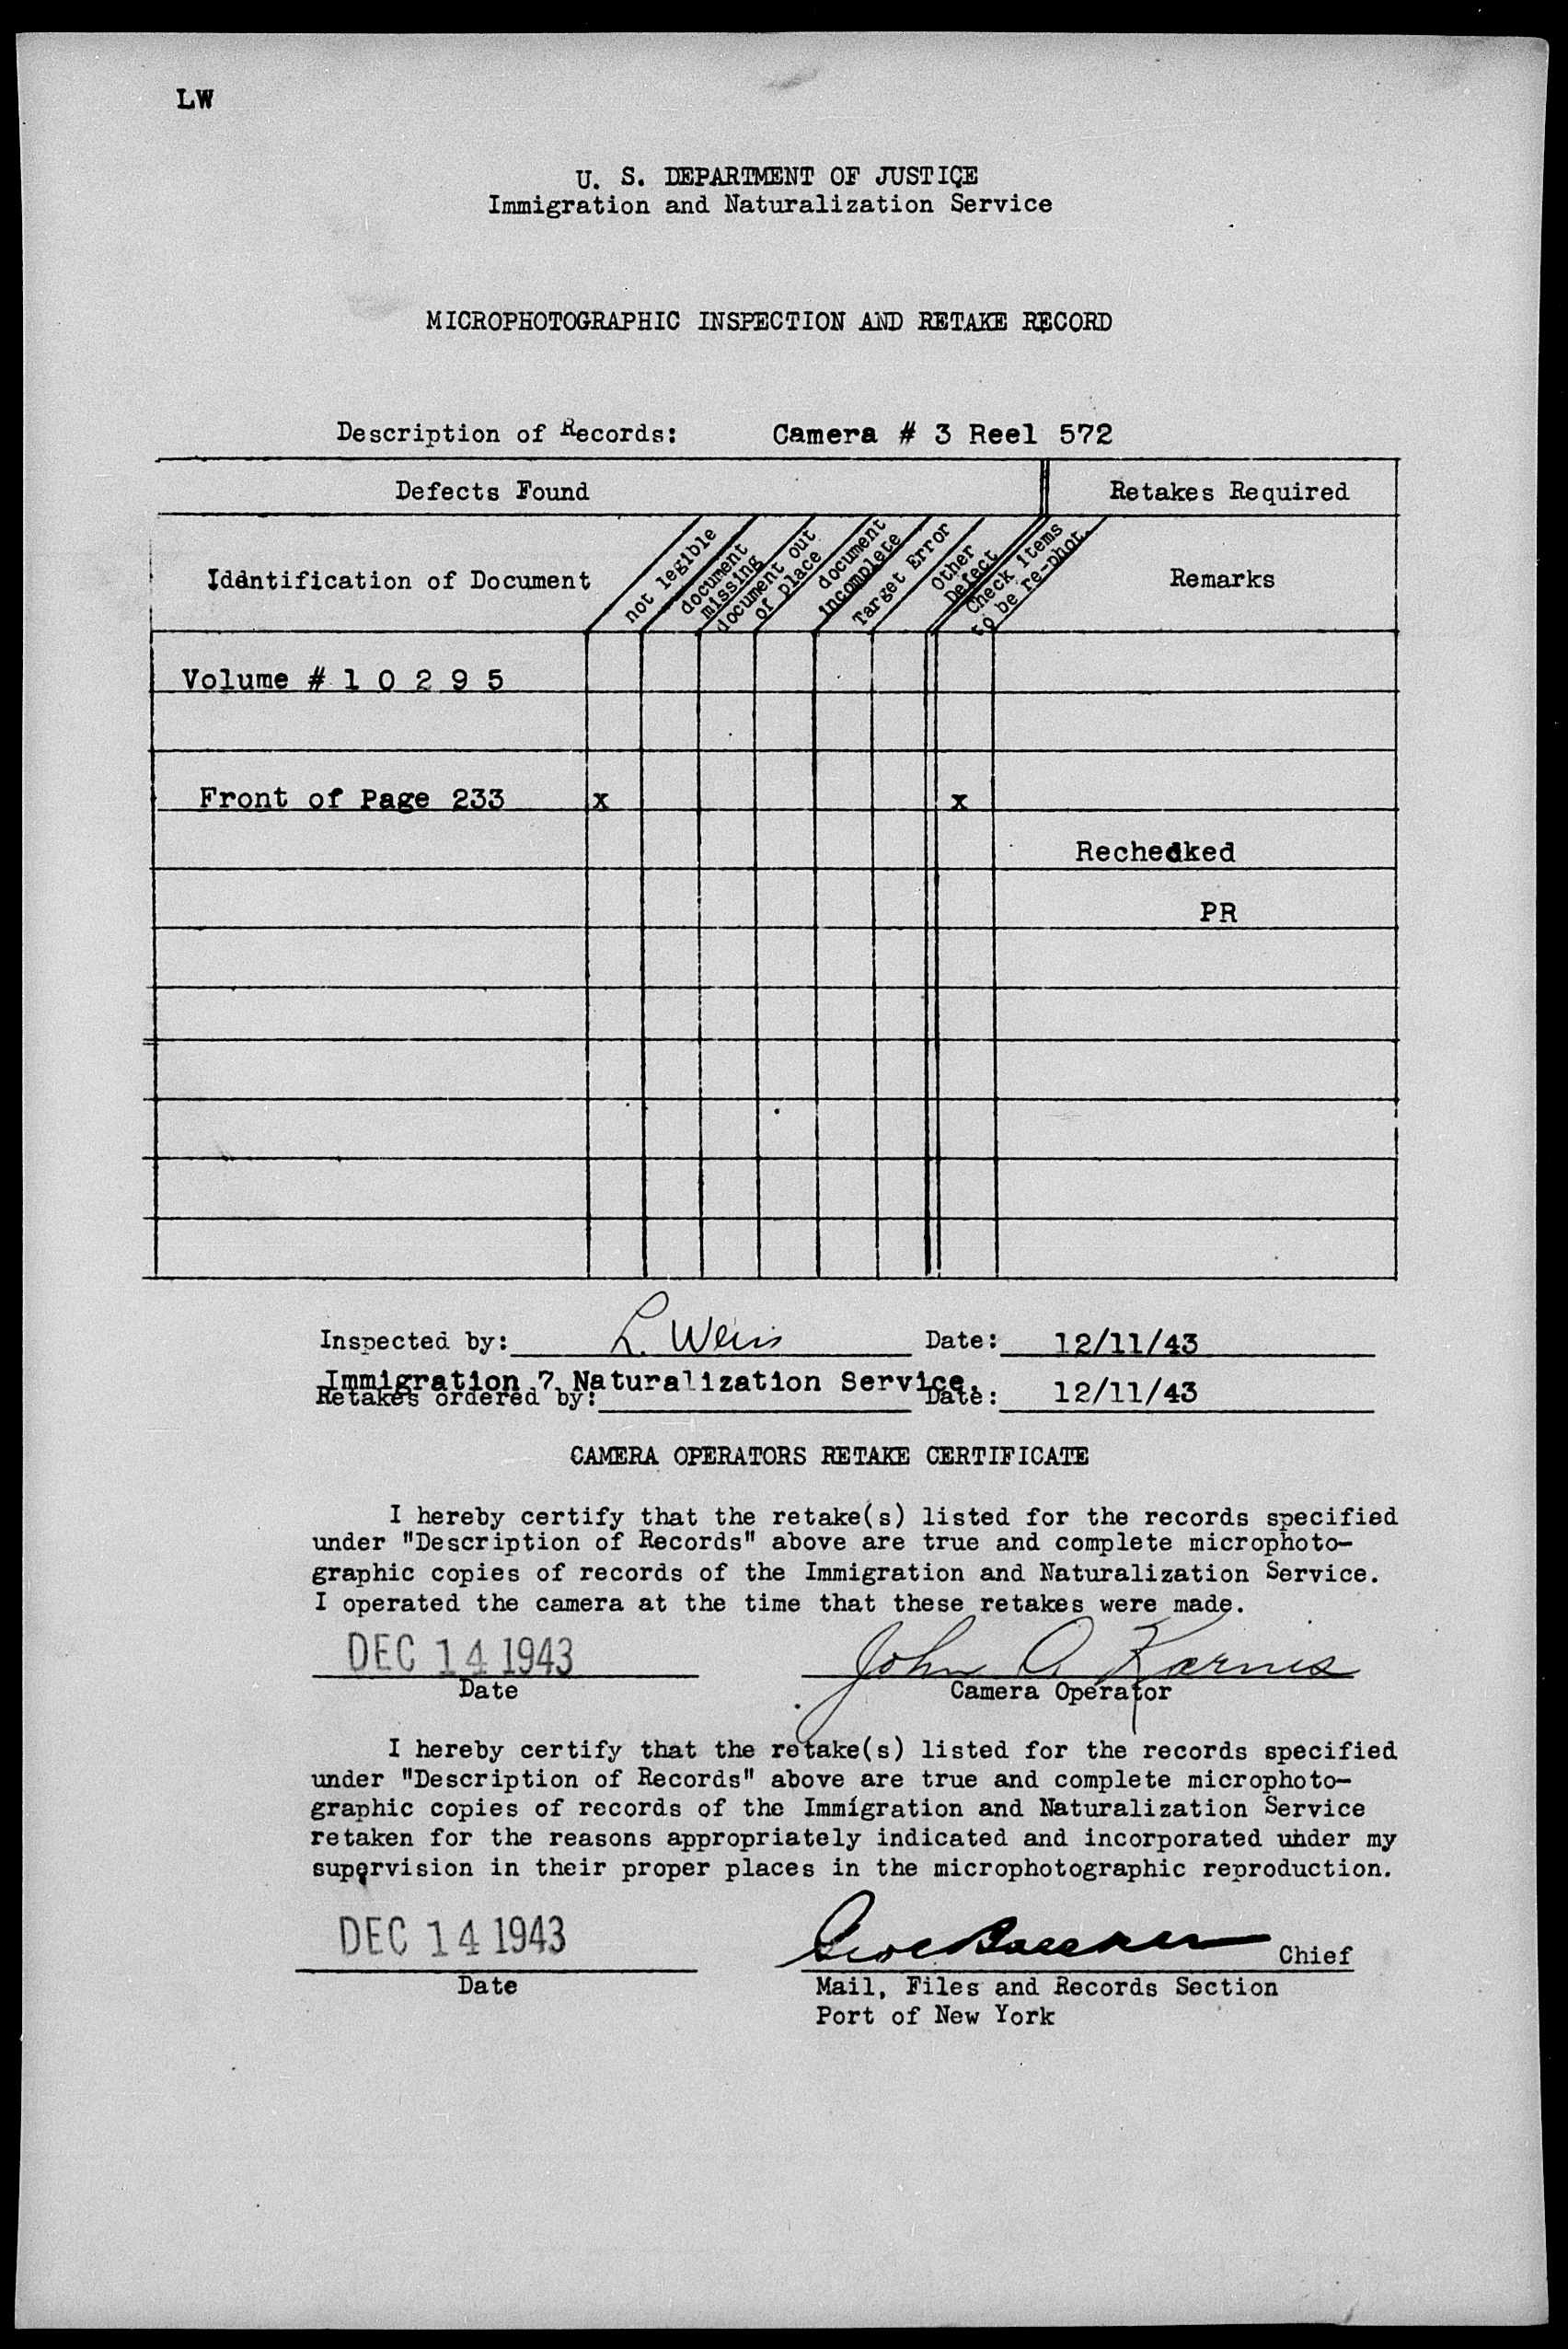 LW
U. S. DEPARTMENT OF JUSTICE
Immigration and Naturalization Service
MICROPHOTOGRAPHIC INSPECTION AND RETAKE RECORD
Description of Records: Camera # 3 Reel 572
Defects Found Retakes Required
Identification of Document
not legible
document
missing
document out
of place
document
incomplete
Target Error
Other
Defect
Check items
to be re-phot.
Remarks
Volume # 1 0 2 9 5
Front of Page 233 x x
Rechedked
PR
Inspected by: L. Weis Date: 12/11/43
Immigration 7 Naturalization Service.
Retakes ordered by: Date: 12/11/43
CAMERA OPERATORS RETAKE CERTIFICATE
I hereby certify that the retake(s) listed for the records specified
under "Description of Records" above are true and complete microphoto-
graphic copies of records of the Immigration and Naturalization Service.
I operated the camera at the time that these retakes were made.
DEC 14 1943 John A Karnis
Date Camera Operator
I hereby certify that the retake(s) listed for the records specified
under "Description of Records" above are true and complete microphoto-
graphic copies of records of the Immigration and Naturalization Service
retaken for the reasons appropriately indicated and incorporated under my
supervision in their proper places in the microphotographic reproduction.
DEC 14 1943 Chief
Date Mail, Files and Records Section
Port of New York